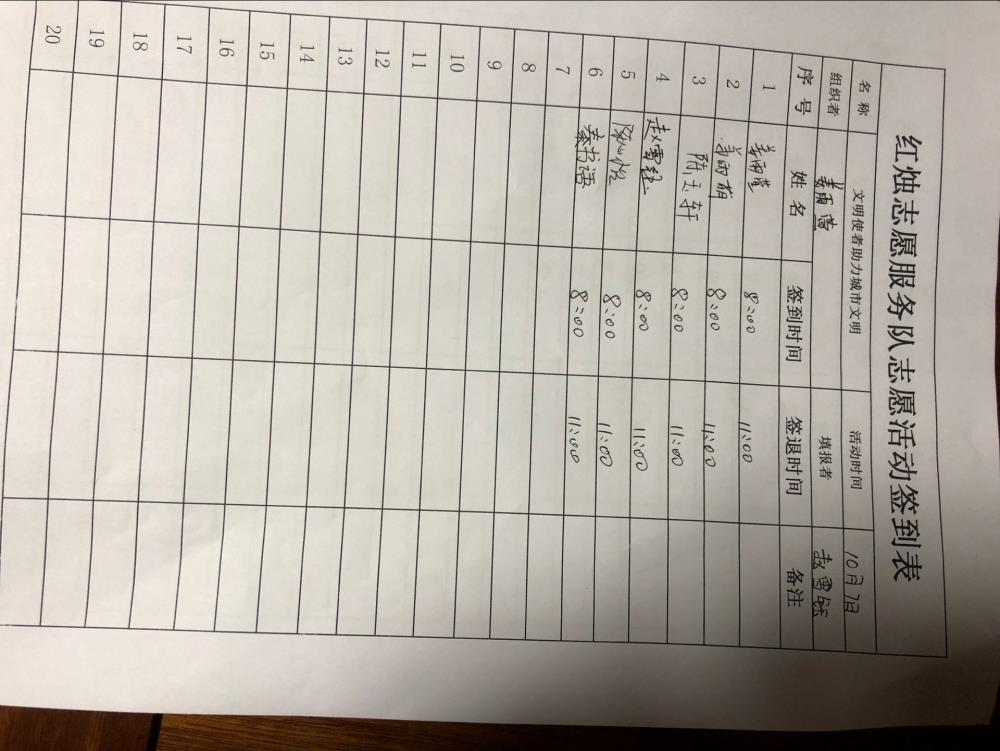 红烛志愿服务队志愿活动签到表
名 称 文明使者助力城市文明 活动时间 10月7日
组织者 姜雨萱 填报者 赵雪
序 号 姓 名 签到时间 签退时间 备注
1 姜雨萱 8:00 11:00
2 姜雨萌 8:00 11:00
3 陈玉轩 8:00 11:00
4 赵雪 8:00 11:00
5 陈心怡 8:00 11:00
6 秦书语 8:00 11:00
7
8
9
10
11
12
13
14
15
16
17
18
19
20